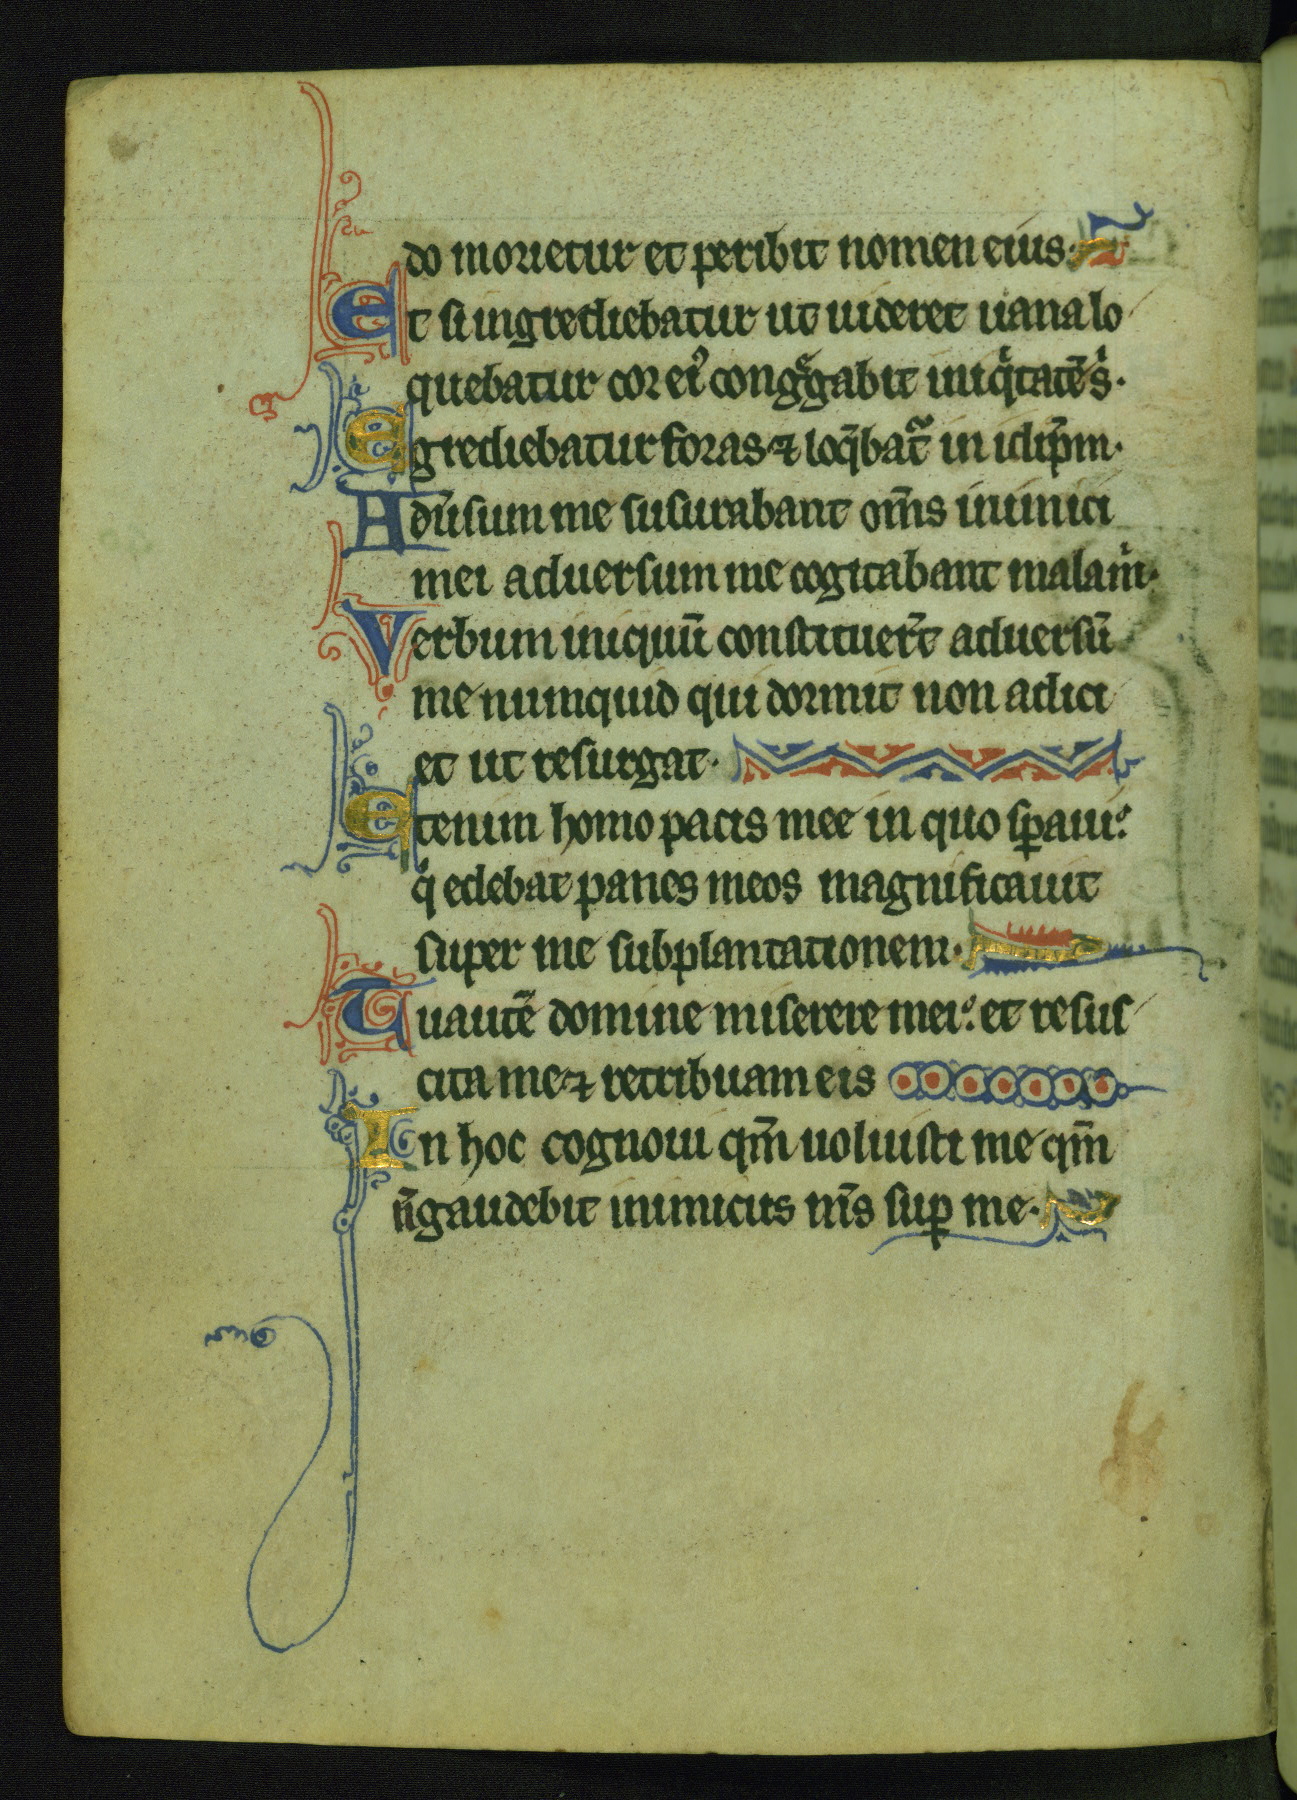 do morietur et peribit nomen eius·
Et si ingrediebatur ut uideret uana lo
quebatur cor ei᷒ congͤgabit iniqͥtatē sͥ·
Egrediebatur foras ⁊ loq̄bat᷑ in idip̄m·
Adūsum me susurabant om̄s inimici
mei aduersum me cogitabant mala mͥ·
Verbum iniquū constituer̄t aduersū
me numquid qui dormit non adici
et ut resurgat·
Etenim homo pacis mee in quo sꝑaui:
qͥ edebat panes meos magnificauit
super me subplantationem·
Tu autē domine miserere mei: et resus
cita me ⁊ retribuam eis
In hoc cognoui qm̄ uoluisti me qm̄
n̄ gaudebit inimicus m̄s suꝑ me·